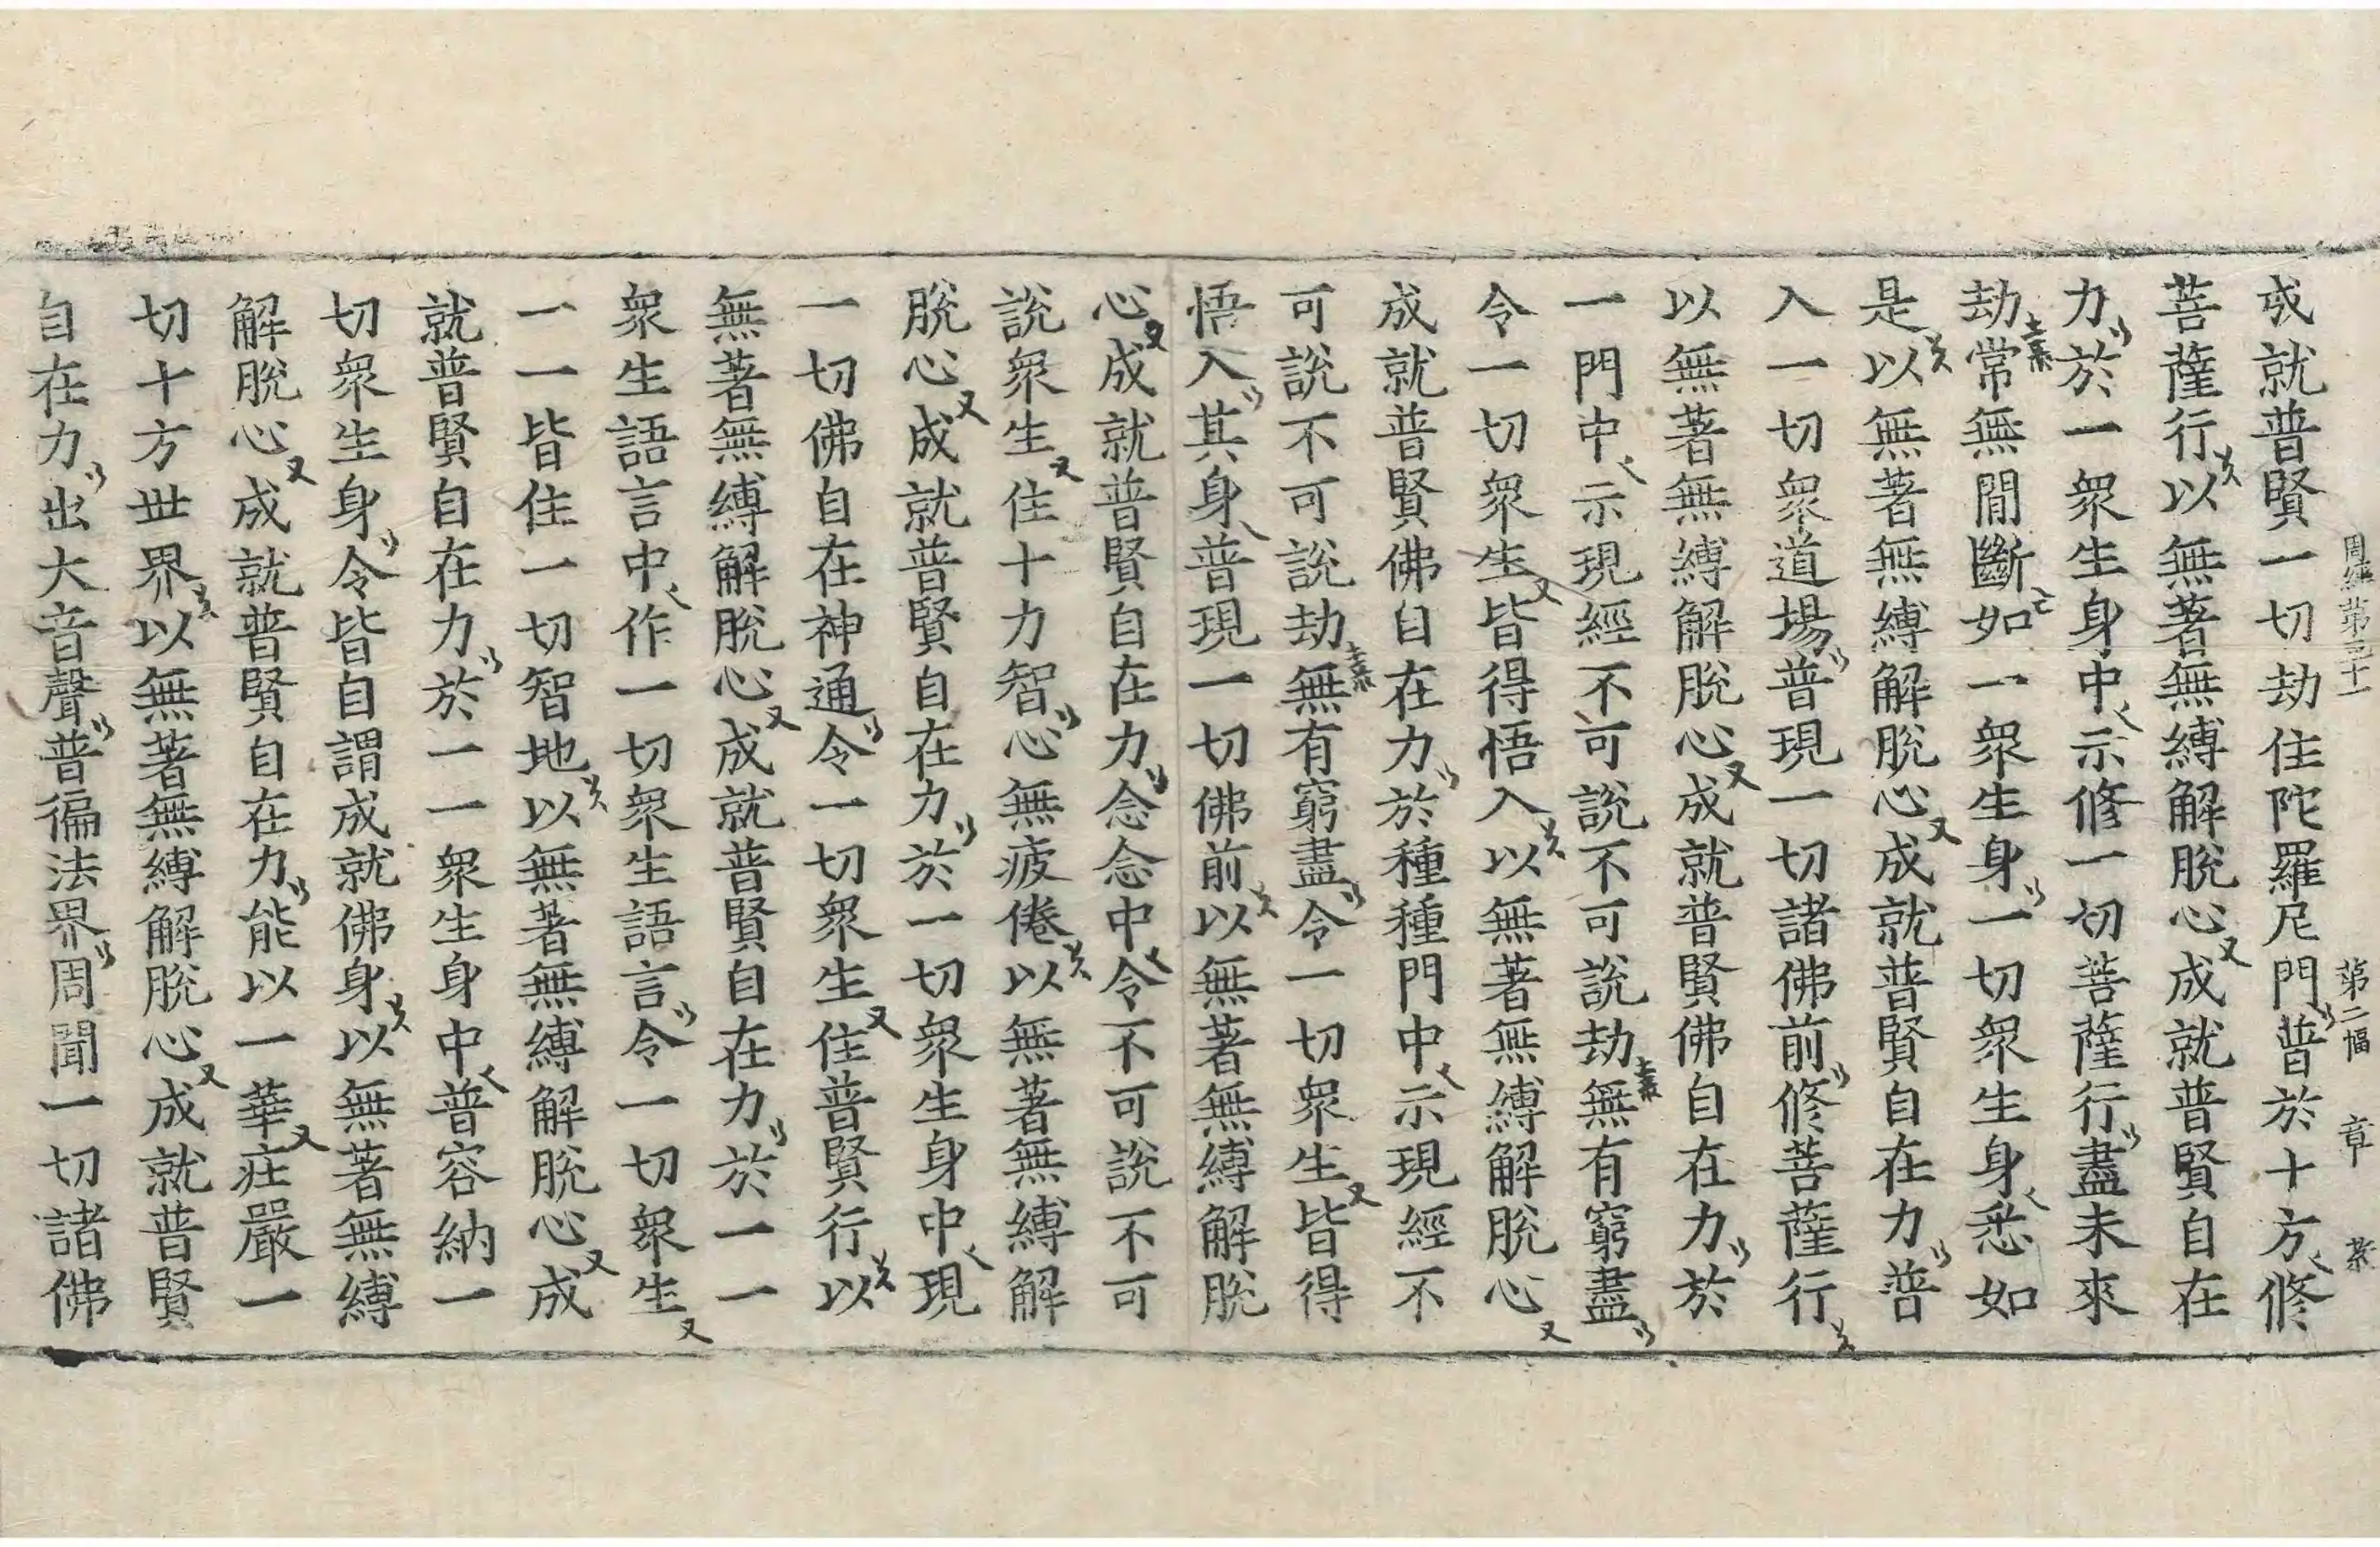 周經第三十一　第二幅　章
成就普賢一切劫住陀羅尼門普於十方修
菩薩行以無著無縛解脫心成就普賢自在
力於一衆生身中示修一切菩薩行盡未來
劫常無間斷如一衆生身一切衆生身悉如
是以無著無縛解脫心成就普賢自在力普
入一切衆道場普現一切諸佛前修菩薩行
以無著無縛解脫心成就普賢佛自在力於
一門中示現經不可說不可說劫無有窮盡
令一切衆生皆得悟入以無著無縛解脫心
成就普賢佛自在力於種種門中示現經不
可說不可說劫無有窮盡令一切衆生皆得
悟入其身普現一切佛前以無著無縛解脫
心成就普賢自在力念念中令不可說不可
說衆生住十力智心無疲倦以無著無縛解
脫心成就普賢自在力於一切衆生身中現
一切佛自在神通令一切衆生住普賢行以
無著無縛解脫心成就普賢自在力於一一
衆生語言中作一切衆生語言令一切衆生
一一皆住一切智地以無著無縛解脫心成
就普賢自在力於一一衆生身中普容納一
切衆生身令皆自謂成就佛身以無著無縛
解脫心成就普賢自在力能以一華莊嚴一
切十方世界以無著無縛解脫心成就普賢
自在力出大音聲普徧法界周聞一切諸佛